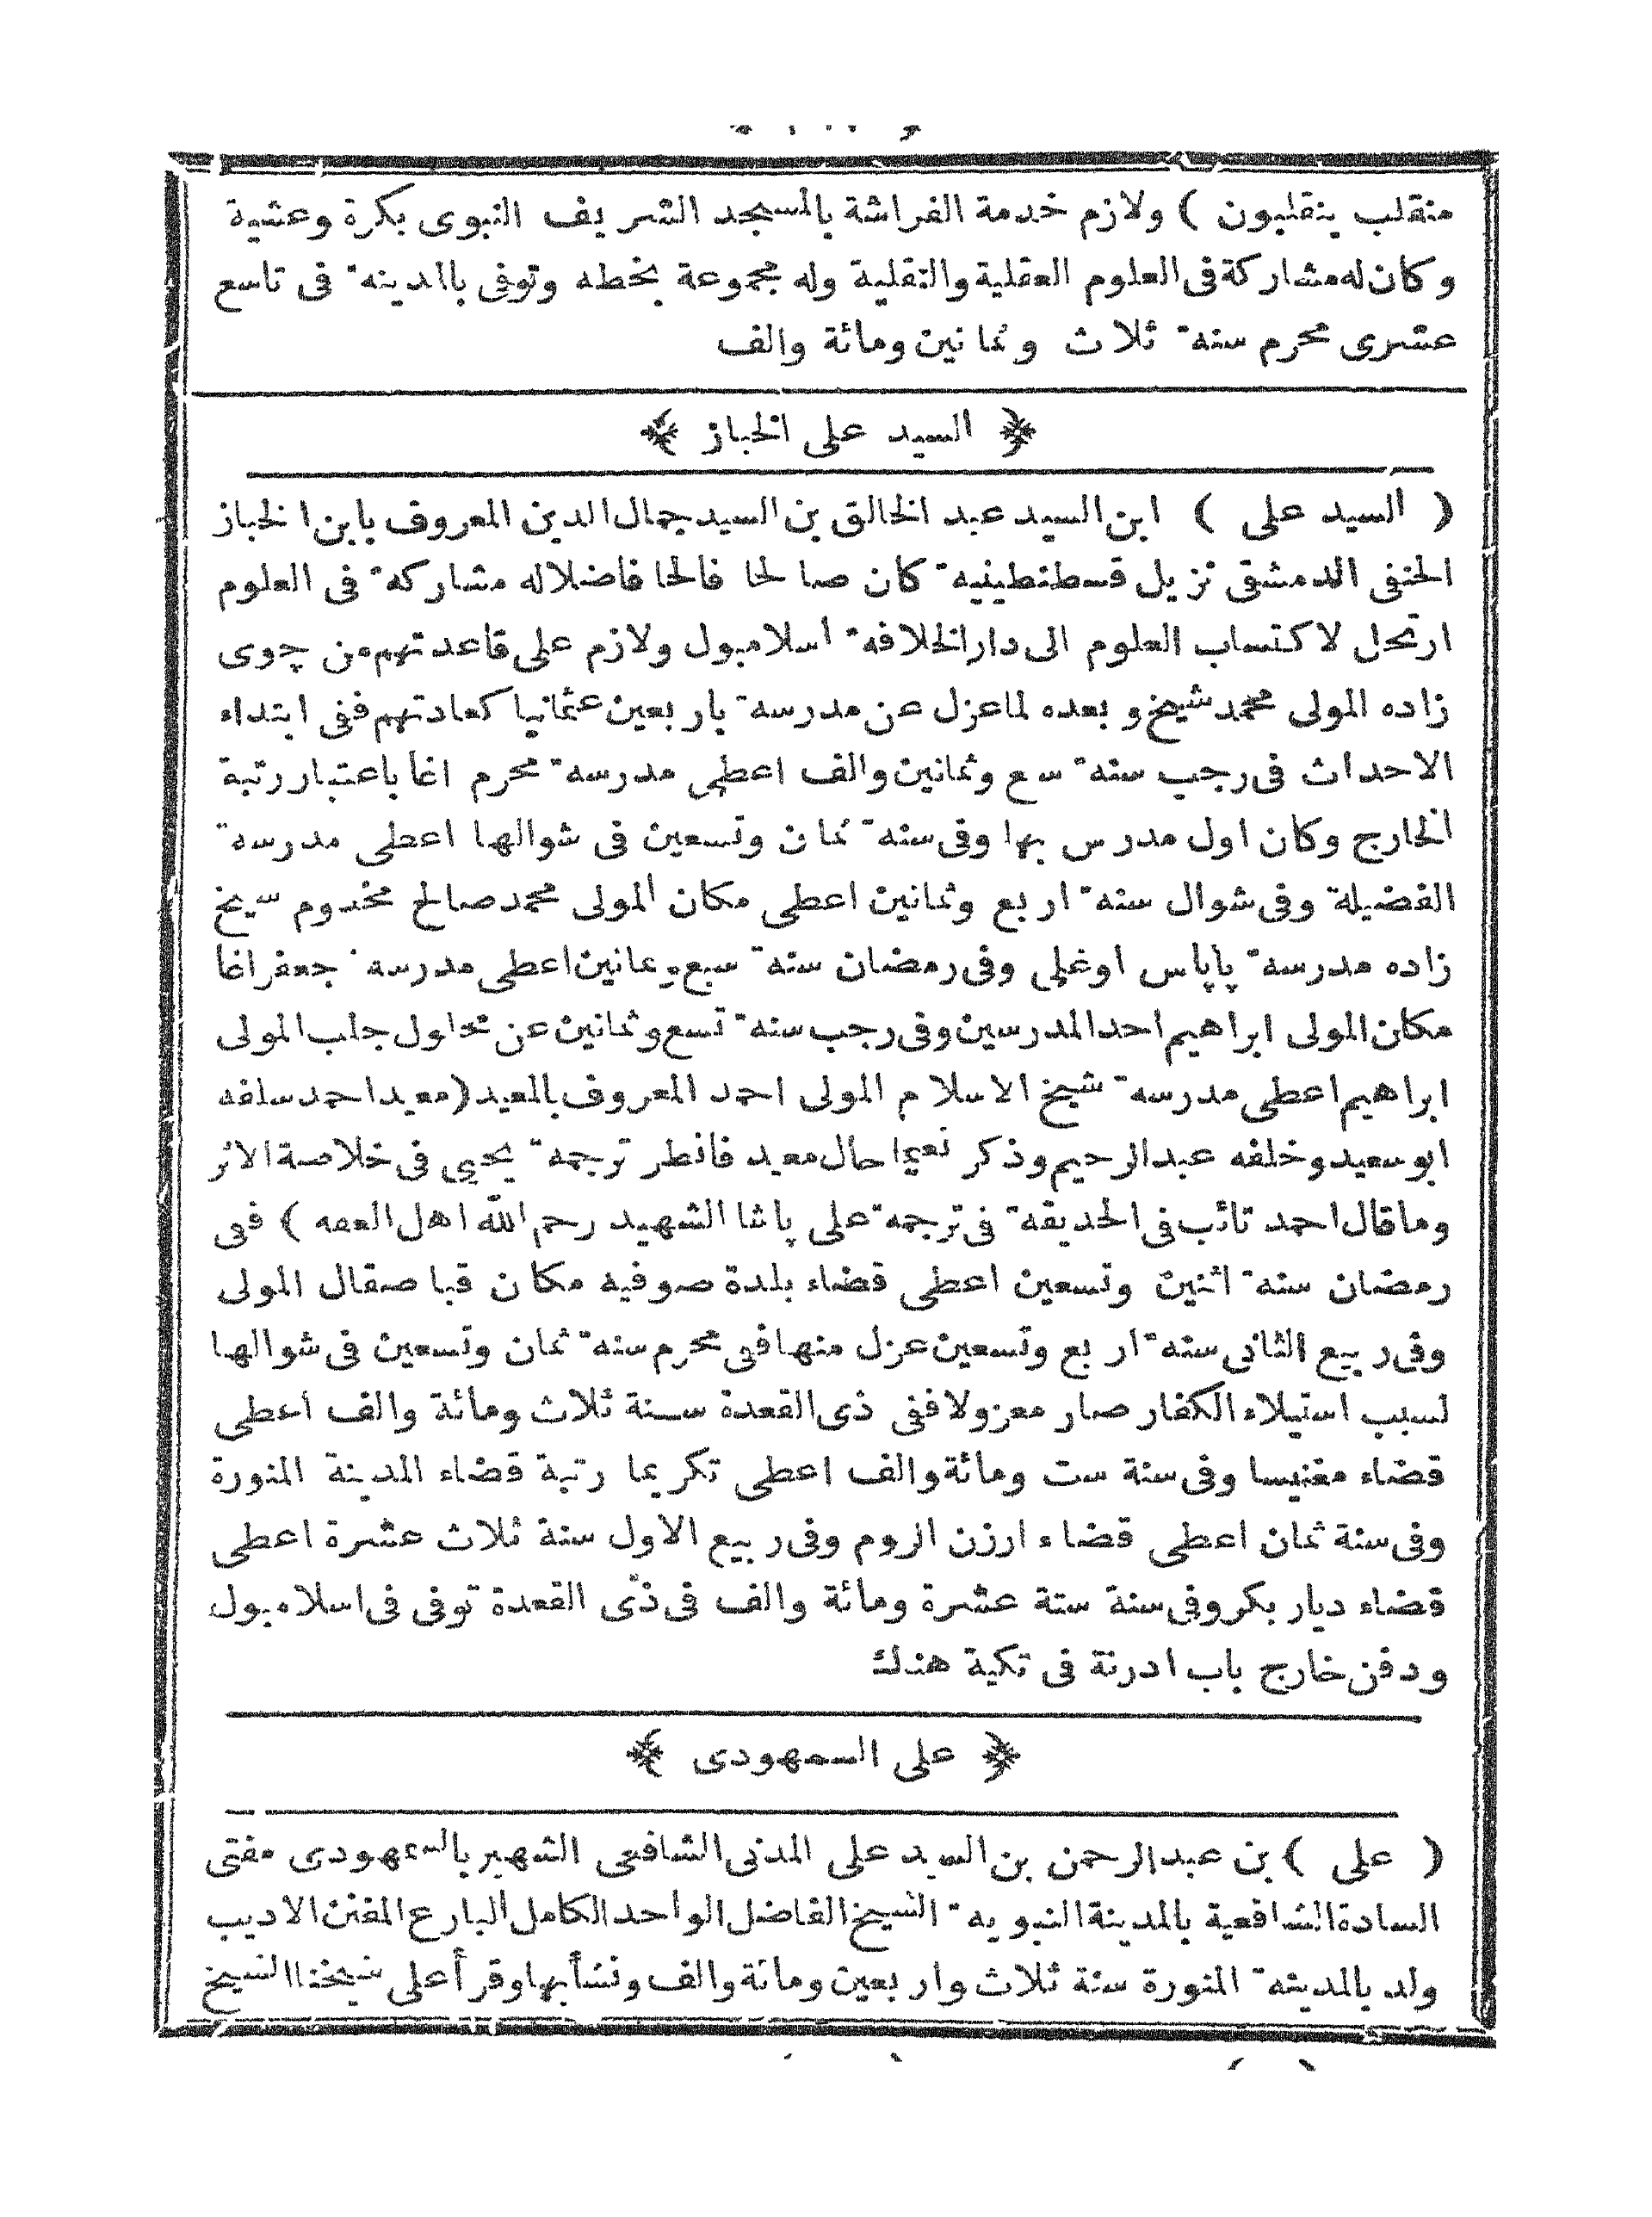 منقلب ينقلبون ) ولازم خدمة الفراشة بالمسجد الشريف النبوى بكرة وعشية
وكان له مشاركة فى العلوم العقلية والنقلية وله مجموعة بخطه وتوفى بالمدينه فى تاسع
عشرى محرم سنه ثلاث وثمانين ومائة والف
﴿ السيد على الخباز ﴾
( السيد على ) ابن السيد عبد الخالق بن السيد جمال الدين المعروف بابن الخباز
الحنفى الدمشقى نزيل قسطنطينيه كان صالحا فالحا فاضلا له مشاركه فى العلوم
ارتحل لاكتساب العلوم الى دار الخلافه اسلامبول ولازم على قاعدتهم من چوى
زاده المولى محمد شيخ وبعده لما عزل عن مدرسه باربعين عثمانيا كعادتهم ففى ابتداء
الاحداث فى رجب سنه سع وثمانين والف اعطى مدرسه محرم اغا باعتبار رتبة
الخارج وكان اول مدرس بها وفى سنه ثمان وتسعين فى شوالها اعطى مدرسه
الفضيلة وفى شوال سنه اربع وثمانين اعطى مكان المولى محمد صالح مخدوم شيخ
زاده مدرسه پاپاس اوغلى وفى رمضان سنه سبع وثمانين اعطى مدرسة جعفر اغا
مكان المولى ابراهيم احد المدرسين وفى رجب سنه تسع وثمانين عن محلول جلب المولى
ابراهيم اعطى مدرسه شيخ الاسلام المولى احمد المعروف بالمعيد (معيد احمد سلفه
ابو سعيد وخلفه عبد الرحيم وذكر نعيما حال معيد فانظر ترجمه يحيى فى خلاصة الاثر
وما قال احمد تائب فى الحديقه فى ترجمه على پاشا الشهيد رحم الله اهل العفه ) ففى
رمضان سنه اثنين وتسعين اعطى قضاء بلدة صوفيه مكان قبا صقال المولى
وفى ربيع الثانى سنه اربع وتسعين عزل منها فى محرم سنه ثمان وتسعين فى شوالها
لسبب استيلاء الكفار صار معزولا ففى ذى القعدة سنة ثلاث ومائة والف اعطى
قضاء مغنيسا وفى سنة ست ومائة والف اعطى تكريما رتبة قضاء المدينة المنورة
وفى سنة ثمان اعطى قضاء ارزن الروم وفى ربيع الاول سنة ثلاث عشرة اعطى
قضاء ديار بكر وفى سنة ستة عشرة ومائة والف فى ذى القعدة توفى فى اسلامبول
ودفن خارج باب ادرنة فى تكية هنك
﴿ على السمهودى ﴾
( على ) بن عبد الرحمن بن السيد على المدنى الشافعى الشهير بالسمهودى مفتى
السادة الشافعية بالمدينة النبويه الشيخ الفاضل الواحد الكامل البارع المفنن الاديب
ولد بالمدينه المنورة سنة ثلاث واربعين ومائة والف ونشأ بها وقرأ على شيخنا الشيخ